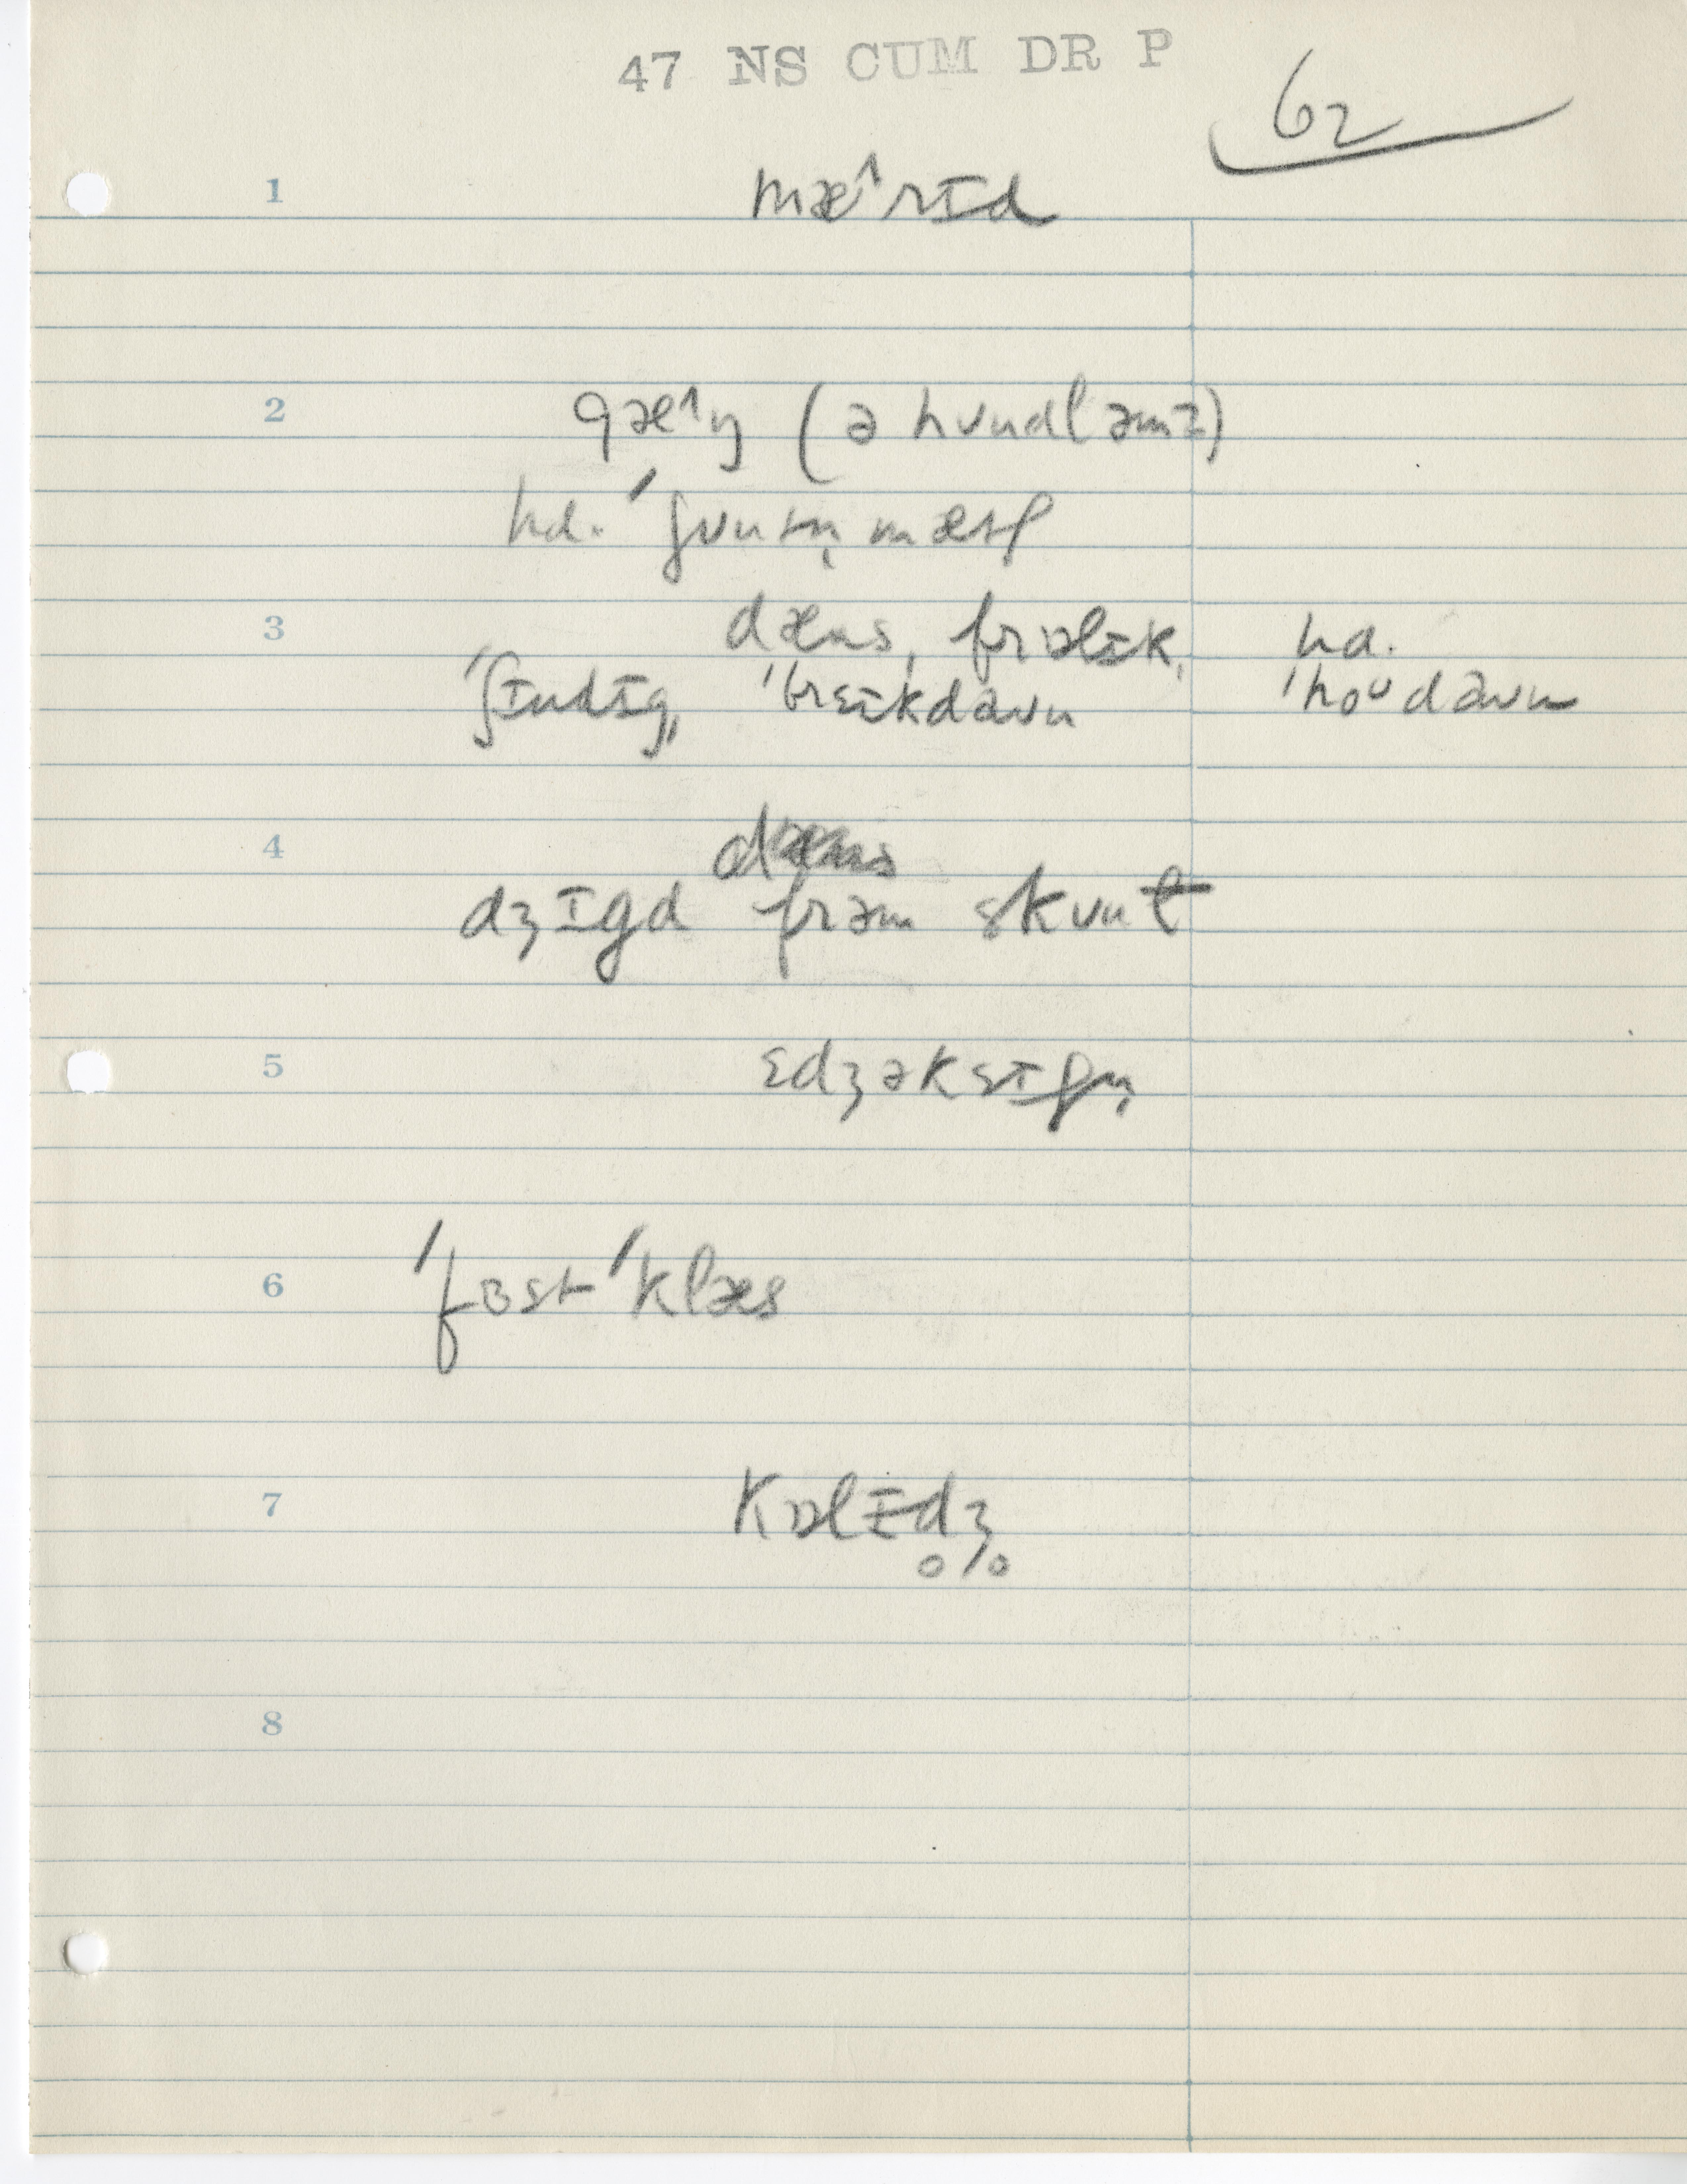 47 NS CUM DR P
62
1 mæ˄rɪd
2 gæ˄ŋ (ə hʊndl əmz)
hd.
3 dæns, frɒlɪk, hd.
ˈʃɪndɪg, ˈbrɛɪkdaʊn ˈhoʊdaʊn
4
dʒɪgd frəm skʊl
5 ɛdʒəkɛɪʃn̩
6 ˈfɜst ˈklæs
7 kɒlɪd̥ʒ̊
8